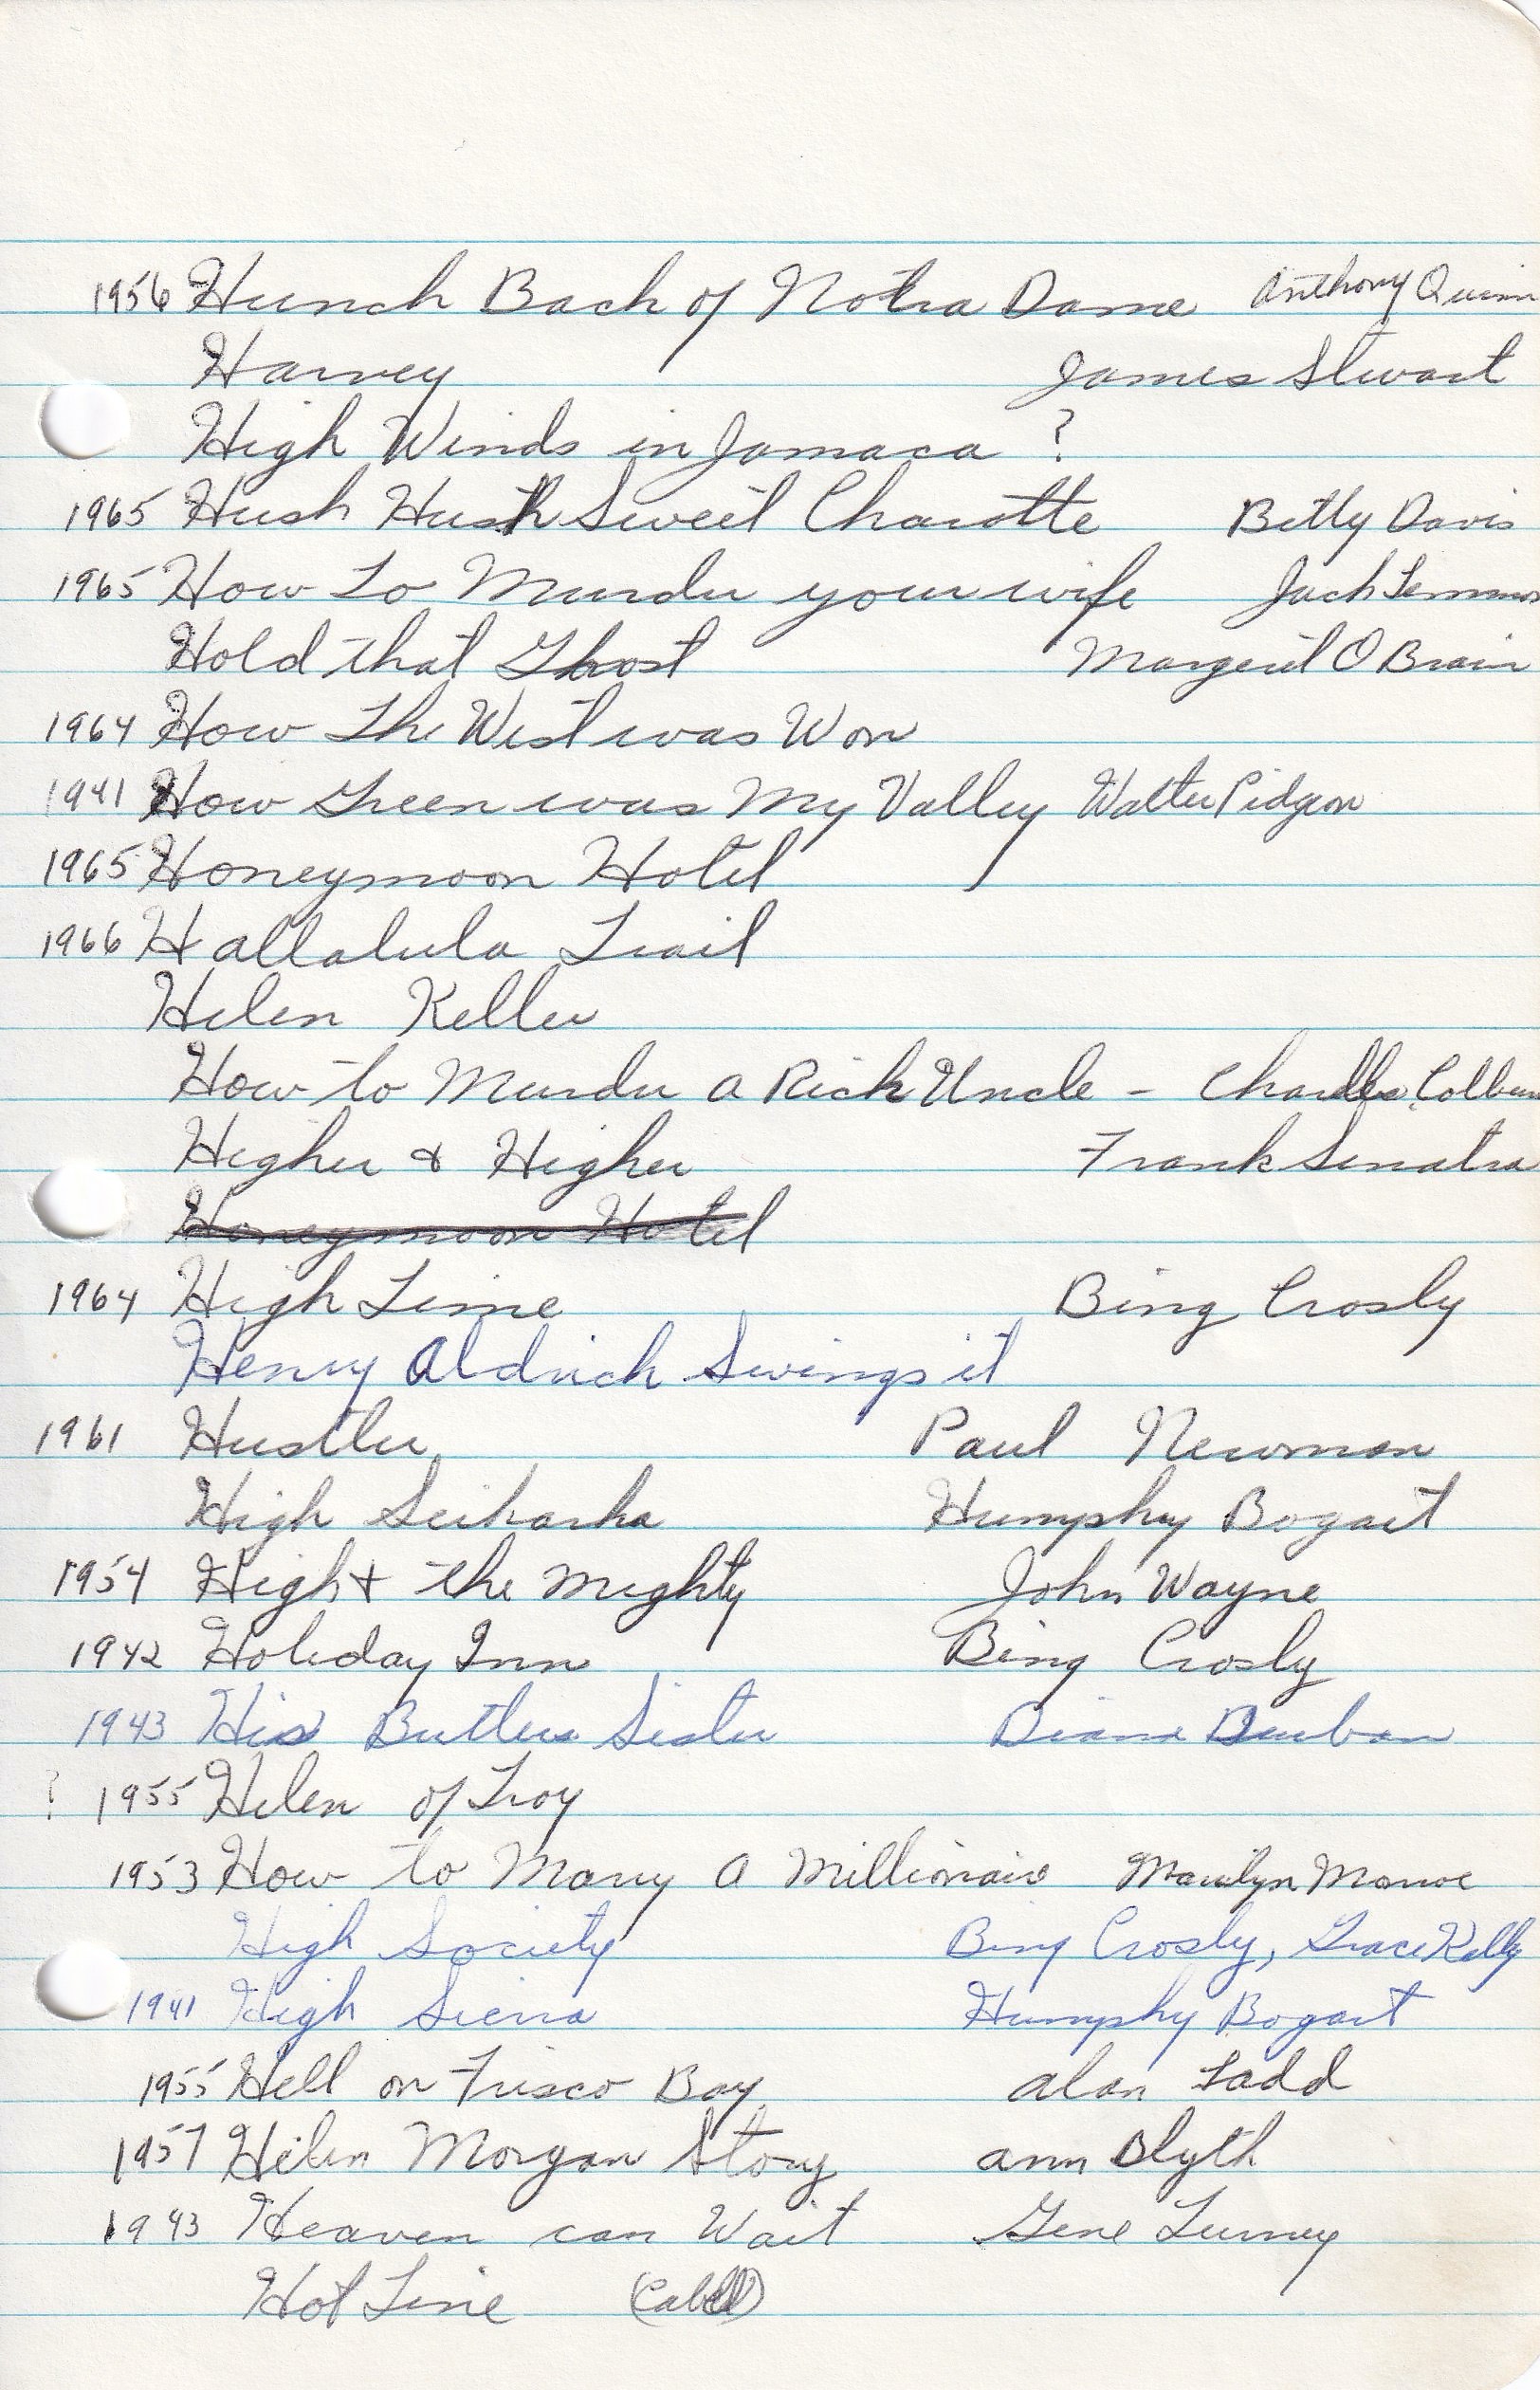 1956 Hunch Back of Notra Dame Anthony Quinn
Harvey James Stewart
High Winds in Jamaca ?
1965 Hush Hush Sweet Charotte Betty Davis
1965 How to Murder your wife Jack Lemmon
Hold that Ghost Margeret O Brain
1964 How The West was Won
1941 How Green was My Valley Walter Pidgeon
1965 Honeymoon Hotel
1966 Hallalula Trail
Helen Keller
How to Murder a Rich Uncle - Charles Colburn
Higher & Higher Frank Sinatra
Honeymoon Hotel
1964 High Time Bing Crosby
Henry Aldrich Swings it
1961 Hustler Paul Newman
High Humphry Bogart
1954 High & the Mighty John Wayne
1942 Holiday Inn Bing Crosby
1943 His Butlers Sister Diana Durban
? 1955 Helen of Troy
1953 How to Marry a Millionaire Marilyn Monroe
High Society Bing Crosby, Grace Kelly
1941 High Sierra Humphry Bogart
1955 Hell on Frisco Bay Alan Ladd
1957 Helen Morgan Story Ann Blyth
1943 Heaven can Wait Gene Turney
Hot Line